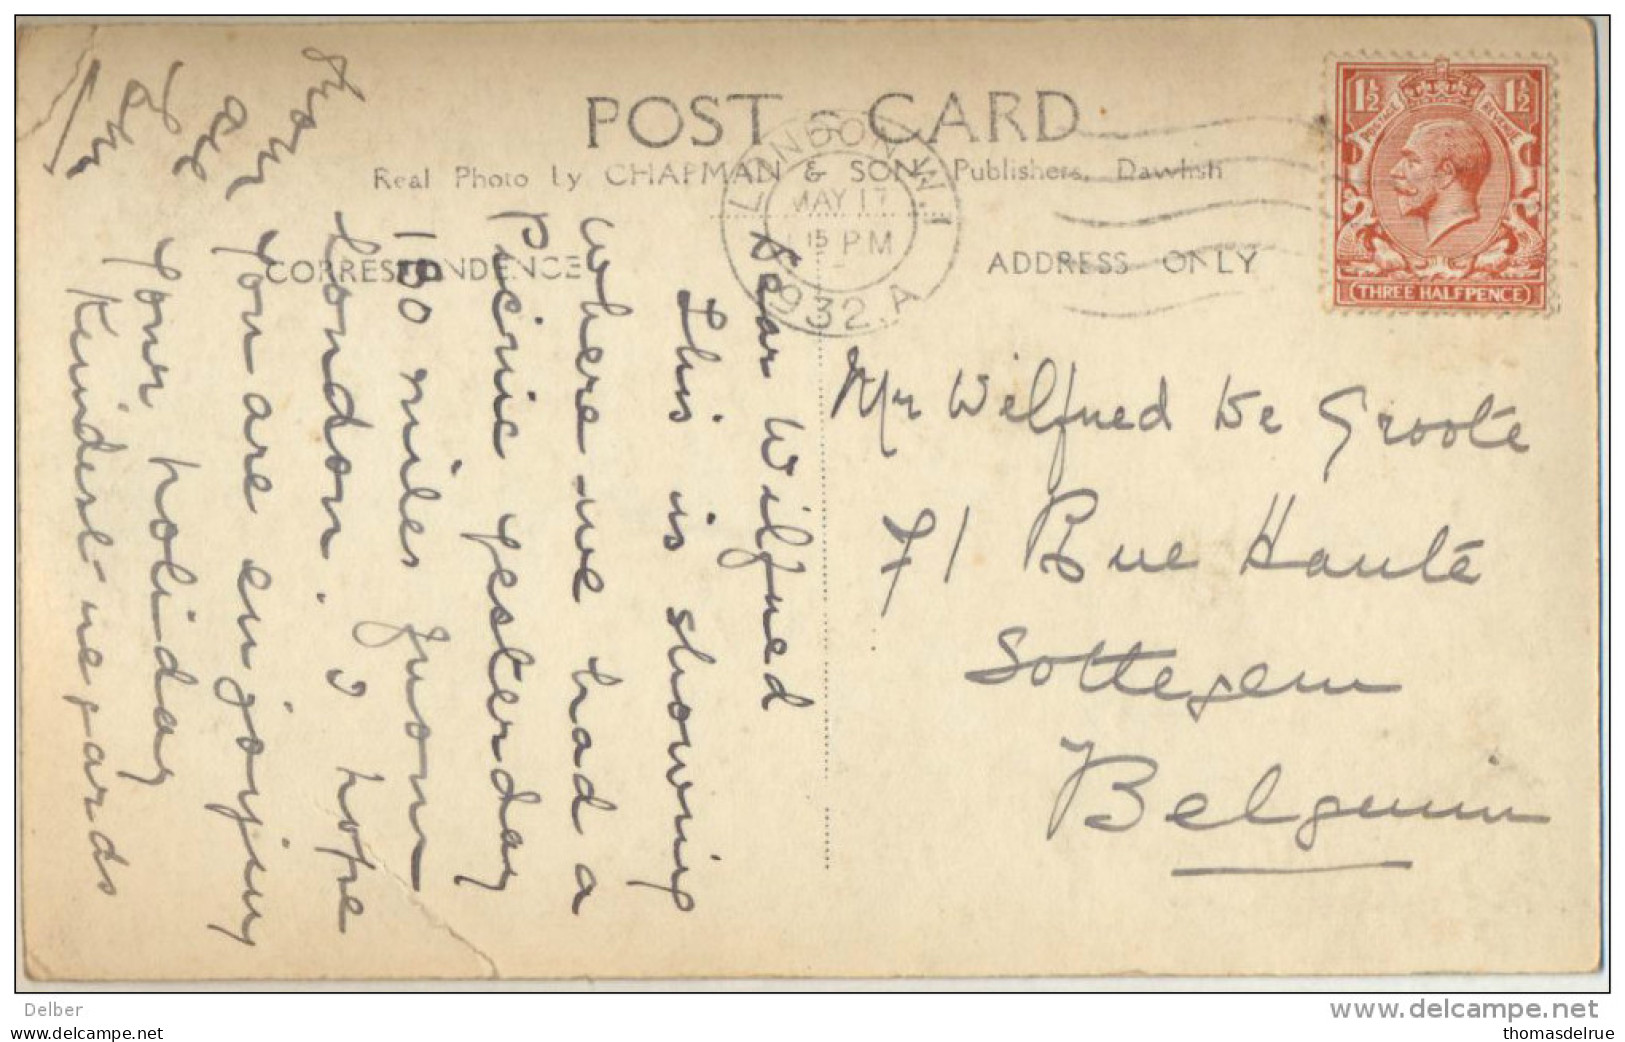 POST CARD
Real Photo by CHAPMAN & SON, Publishers, Dawlish
CORRESPONDENCE
ADDRESS ONLY
LONDON. W.1
MAY 17
15 PM
1932. A
1½ 1½
POSTAGE REVENUE
THREE HALFPENCE
Dear Wilfred
This is showing
where we had a
Picnic yesterday
180 miles from
London. I hope
you are enjoying
your holiday
Kindest regards
from
all
Mr Wilfred De Groote
71 Rue Haute
Sottegem
Belgium
Delber
www.delcampe.net
www.delcampe.net
thomasdelrue